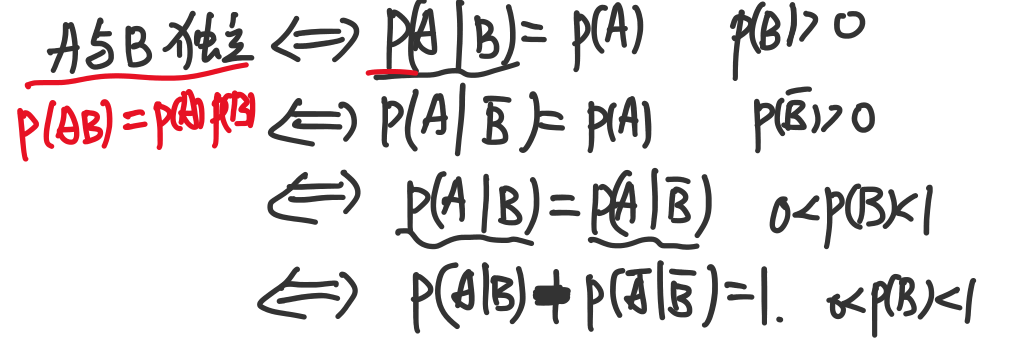 A与B独立 ⟺ P(A|B) = P(A) P(B) > 0
P(AB) = P(A)P(B) ⟺ P(A|B̅) = P(A) P(B̅) > 0
⟺ P(A|B) = P(A|B̅) 0 < P(B) < 1
⟺ P(A|B) + P(A̅|B̅) = 1. 0 < P(B) < 1